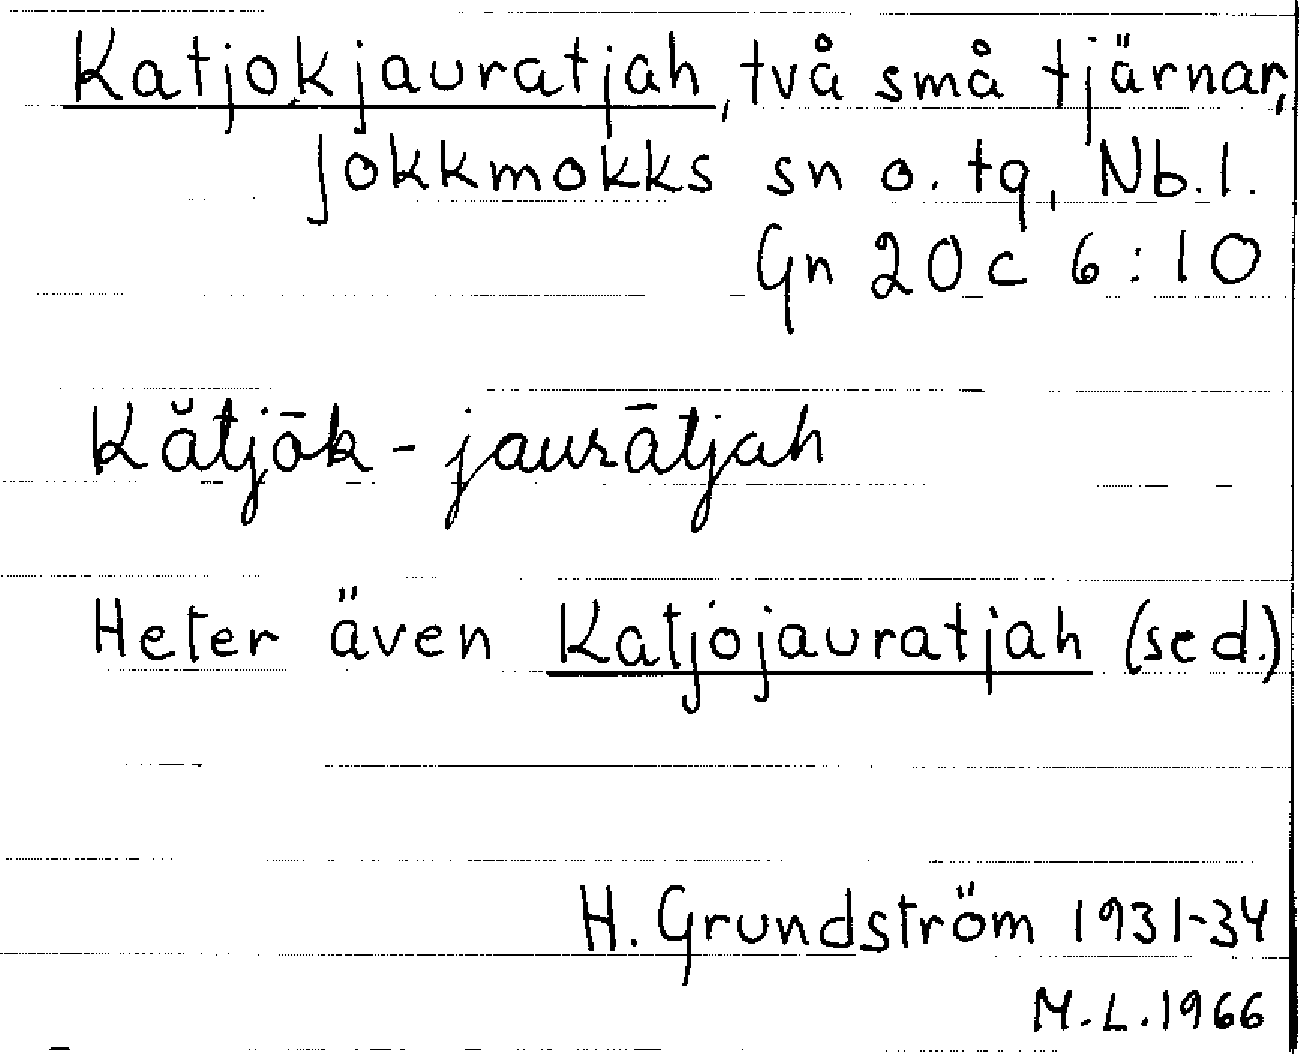 Katjokjauratjah, två små tjärnar,
Jokkmokks sn o. tg, Nb.l.
Gn 20 c 6:10
Kătjōk-jaurātjah
Heter även Katjojauratjah (sed.)
H. Grundström 1931-34
M.L.1966